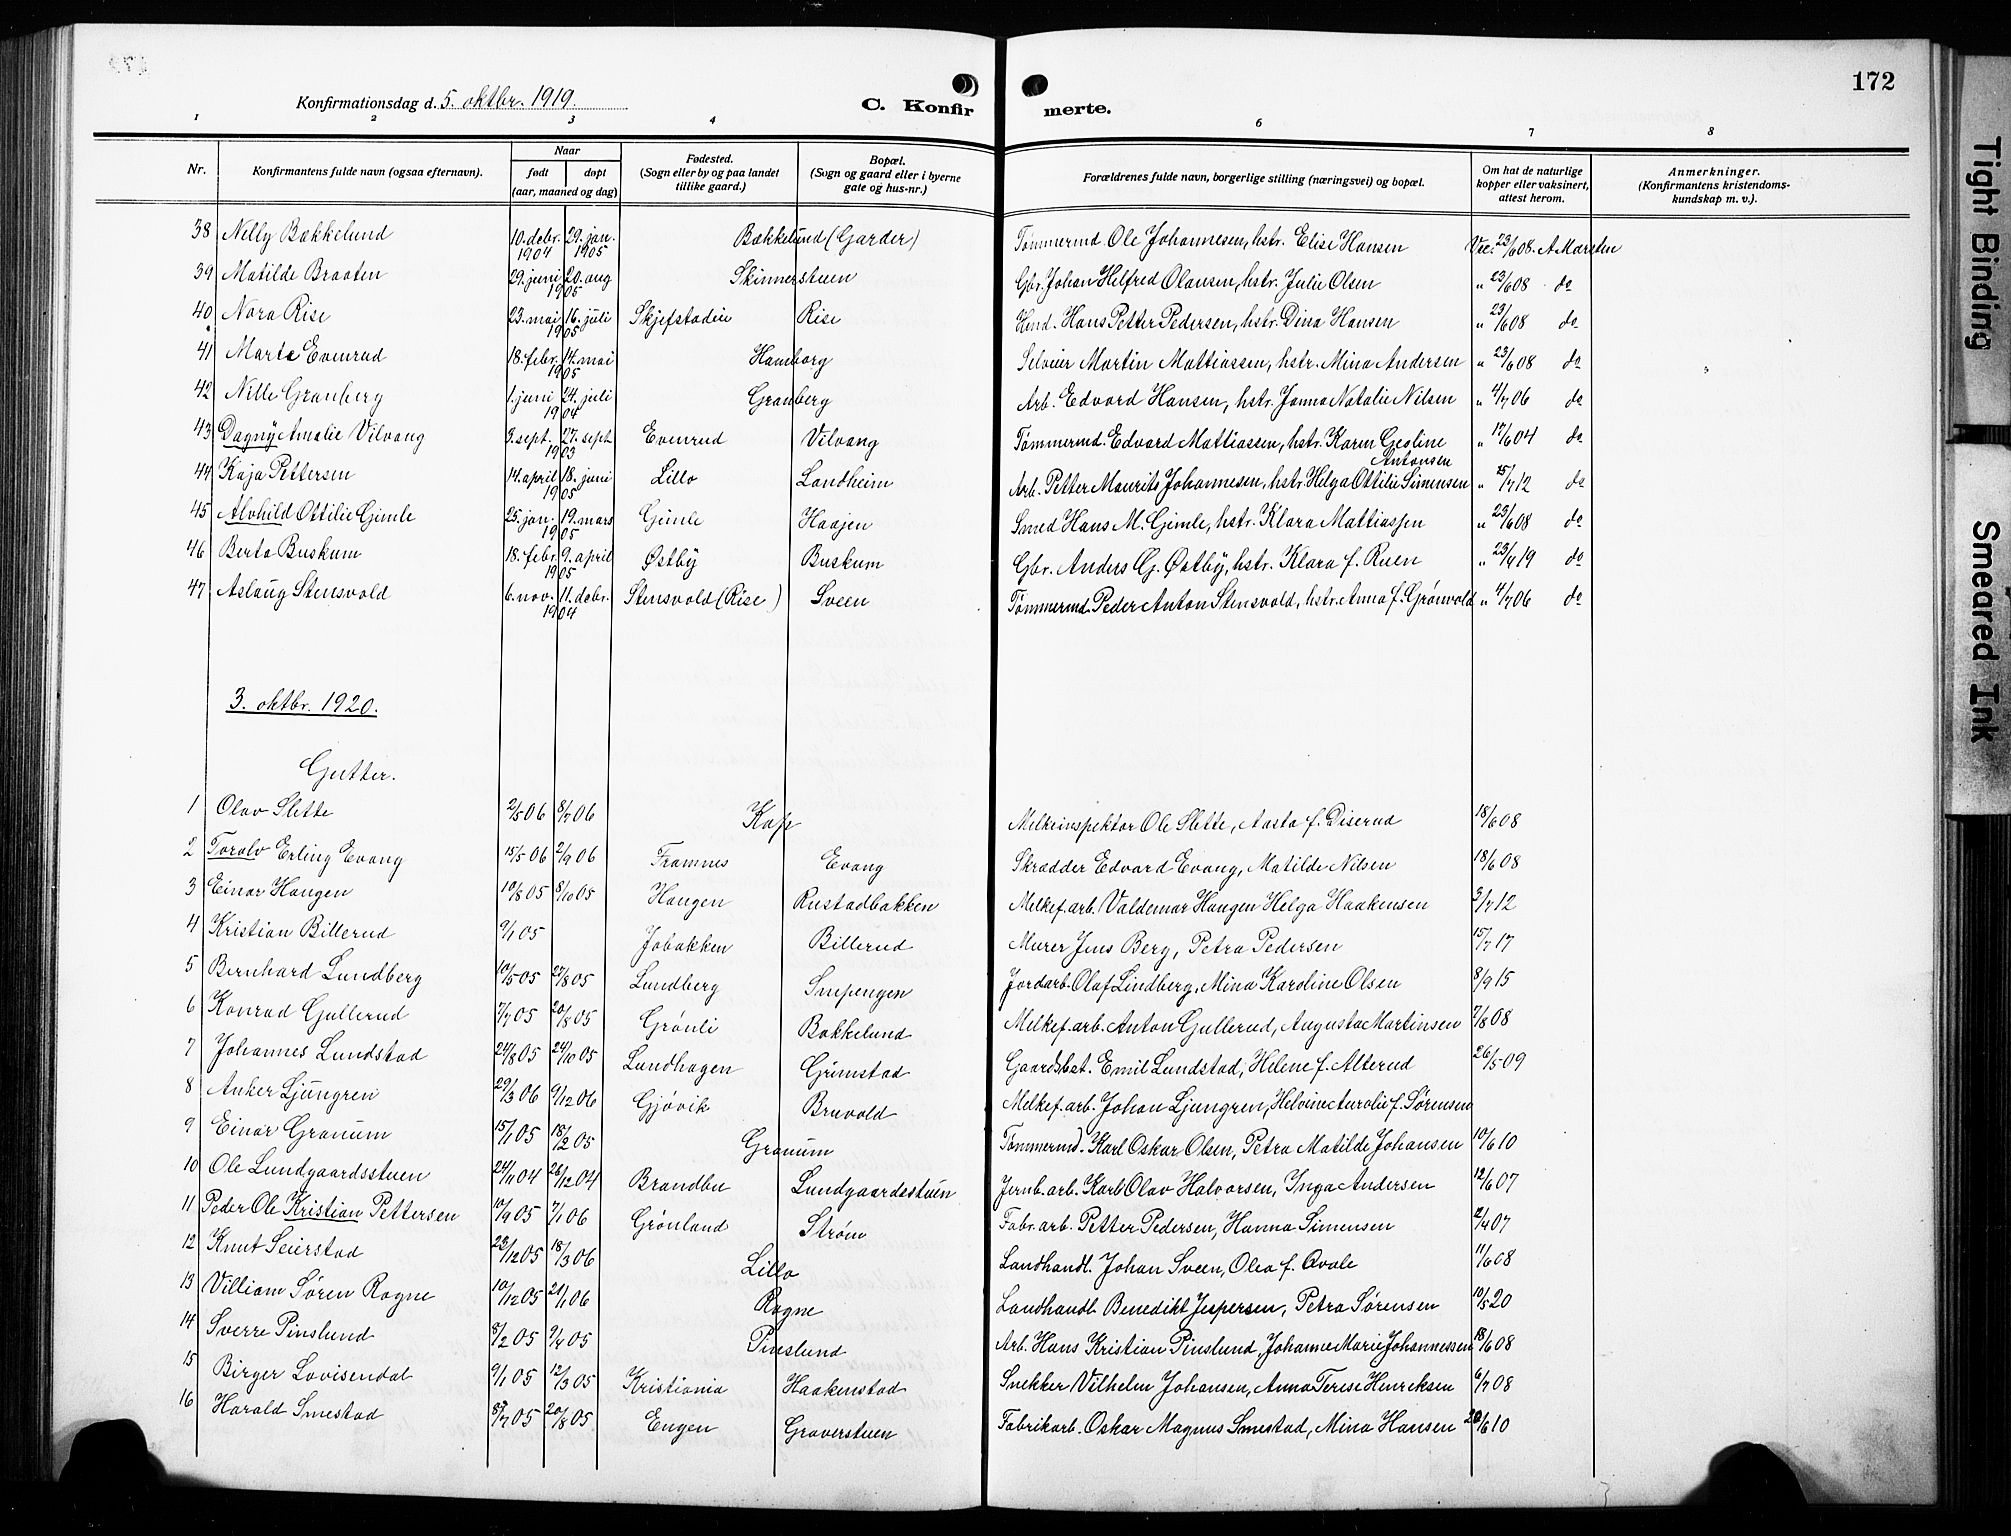 172
Konfirmationsdag d. 5. oktbr. 1919.
C. Konfirmerte.
1 2 3 4 6 7 8
Nr. Konfirmantens fulde navn (ogsaa efternavn). Naar født døpt (aar, maaned og dag) Fødested. (Sogn eller by og paa landet tillike gaard.) Bopæl. (Sogn og gaard eller i byerne gate og hus-nr.) Forældrenes fulde navn, borgerlige stilling (næringsvei) og bopæl. Om hat de naturlige kopper eller vaksinert, attest herom. Anmerkninger. (Konfirmantens kristendomskundskap m. v.).
38 Nelly Bækkelund 10. debr. 1904 29. jan. 1905 Bækkelund (Garder) Tømmermd. Ole Johannesen, hstr. Elise Hansen Vac. 23/6 08. A Marsten
39 Matilde Braaten 29. juni 20. aug 1905 Skinnerstuen Gbr. Johan Helfred Olausen, hstr. Julie Olsen " 23/6 08 do
40 Nora Rise 23. mai 16. juli 1905 Skjefstadeie Rise Hmd. Hans Petter Pedersen, hstr. Dina Hansen " 23/6 08 do
41 Marte Evenrud 18. febr. 14. mai 1905 Hamborg Selveier Martin Mattiassen, hstr. Mina Andersen " 23/6 08 do
42 Nelle Granberg 1. juni 24. juli 1904 Granberg Arb. Edvard Hansen, hstr. Janna Natalie Nilsen " 4/7 06 do
43 Dagny Amalie Vilvang 3. sept. 27. sept 1903 Evenrud Vilvang Tømmermd. Edvard Mattiassen, hstr. Karen Geoline Antonsen " 17/6 04 do
44 Kaja Pettersen 14. april 18. juni 1905 Lillo Landheim Arb. Petter Maurits Johannesen, hstr. Helga Ottilie Simensen " 15/7 12 do
45 Alvhild Ottilie Gimle 25. jan. 19. mars 1905 Gimle Haajen Smed Hans M. Gimle, hstr. Klara Mattiassen " 23/6 08 do
46 Berta Buskum 18. febr. 9. april 1905 Østby Buskum Gbr. Anders G. Østby, hstr. Klara f. Ruen " 23/4 19 do
47 Aslaug Stensvold 6. nov. 11. debr. 1904 Stensvold (Rise) Sveen Tømmermd. Peder Anton Stensvold, hstr. Anna f. Grønvold " 4/7 06 do
3. oktbr. 1920.
Gutter.
1 Olav Slette 2/5 06 8/7 06 Kap Melkeinspektør Ole Slette, Aasta f. Diserud 18/6 08
2 Toralv Erling Evang 15/5 06 2/9 06 Framnes Evang Skrædder Edvard Evang, Matilde Nilsen 18/6 08
3 Einar Haugen 10/8 05 8/10 05 Haugen Rustadbakken Melkef. arb. Valdemar Haugen Helga Haakensen 3/7 12
4 Kristian Billerud 9/1 05 Jobakken Billerud Murer Jens Berg, Petra Pedersen 15/7 17
5 Bernhard Lundberg 10/5 05 27/8 05 Lundberg Smpengen Jordarb. Olaf Lindberg, Mina Karoline Olsen 8/9 15
6 Konrad Gullerud 7/7 05 20/8 05 Grønli Bakkelund Melkef. arb. Anton Gullerud, Augusta Martinsen 7/8 08
7 Johannes Lundstad 24/8 05 24/10 05 Lundhagen Grimstad Gaardsbst. Emil Lundstad, Helene f. Alterud 26/5 09
8 Anker Ljungren 29/3 06 9/12 06 Gjøvik Bruvold Melkef. arb. Johan Ljungren, Helvine Auralie f. Sørensen
9 Einar Granum 15/1 05 18/2 05 Granum Tømmermd. Karl Oskar Olsen, Petra Matilde Johansen 10/6 10
10 Ole Lundgaardsstuen 24/11 04 26/12 04 Brandbu Lundgaardsstuen Jernb. arb. Karl Olav Halvorsen, Inga Andersen 12/6 07
11 Peder Ole Kristian Pettersen 10/9 05 7/1 06 Grønland Strøm Fabr. arb. Petter Pedersen, Hanna Simensen 12/4 07
12 Knut Seierstad 23/12 05 18/3 06 Lillo Landhandl. Johan Sveen, Olea f. Qvale 11/6 08
13 Villiam Søren Rogne 10/12 05 21/1 06 Rogne Landhandl. Benedikt Jespersen, Petra Sørensen 10/5 20
14 Sverre Pinslund 8/2 05 9/4 05 Pinslund Arb. Hans Kristian Pinslund, Johanne Marie Johannessen 18/6 08
15 Birger Lovisendal 9/1 05 12/3 05 Kristiania Haakenstad Snekker Vilhelm Johansen, Anna Terese Henriksen 6/7 08
16 Harald Smestad 8/7 05 20/8 05 Engen Graverstuen Fabrikarb. Oskar Magnus Smestad, Mina Hansen 20/6 10
Tight Binding
Smeared Ink